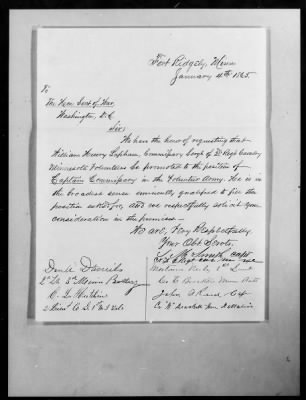 Fort Ridgely, Minn
January 4th 1865
To
The Hon. Sect of War,
Washington, D.C.
Sir,
We have the honor of requesting that
William Henry Lapham, Commissary Sergt of 2d Regt Cavalry
Minnesota Volunteers be promoted to the position of
Captain Commissary in the Volunteer Army. He is in
the broadest sense eminently qualified to fill the
position asked for, and we respectfully solicit your
consideration in the premises
We are, Very Respectfully
Your Obt Servts.
Smith, capt
1st Lieut
Co
John
Co
Daniels
2d Lt 3d Minn Battery
C. L.
2 Lieut Co D. 1st M Vols